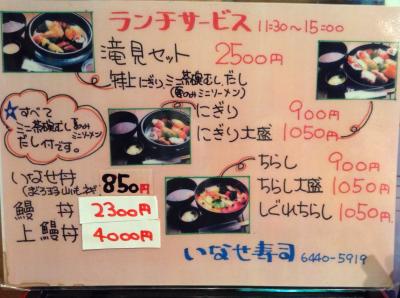 ランチサービス 11:30〜15:00
滝見セット 2500円
特上にぎり ミニ茶碗むし だし
(夏のみミニソーメン)
☆すべて
ミニ茶碗むし 夏のみミニソーメン
だし付です。
にぎり 900円
にぎり大盛 1050円
いなせ丼 850円
(まぐろ 山いも ネギ)
鰻丼 2300円
上鰻丼 4000円
ちらし 900円
ちらし大盛 1050円
しぐれちらし 1050円
いなせ寿司 6440-5919